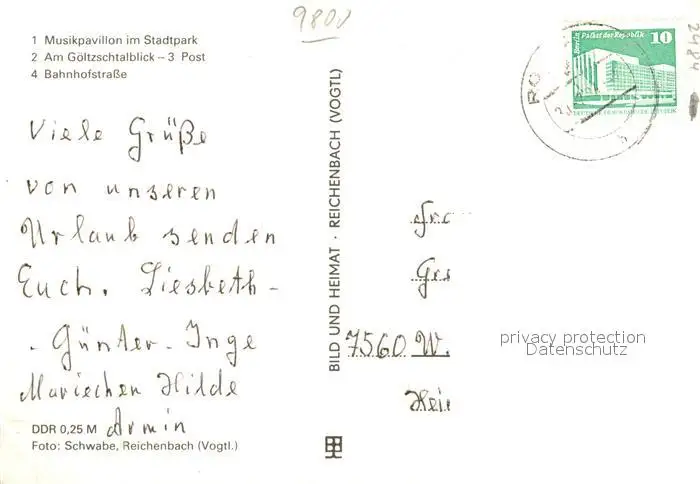 9800
1 Musikpavillon im Stadtpark
2 Am Göltzschtalblick – 3 Post
4 Bahnhofstraße
Viele Grüße
von unseren
Urlaub senden
Euch. Liesbeth -
. Günter. Inge
Mariechen Hilde
Armin
DDR 0,25 M
Foto: Schwabe, Reichenbach (Vogtl.)
BILD UND HEIMAT · REICHENBACH (VOGTL)
Berlin Palast der Republik
10
2484
7560 W.
privacy protection
Datenschutz